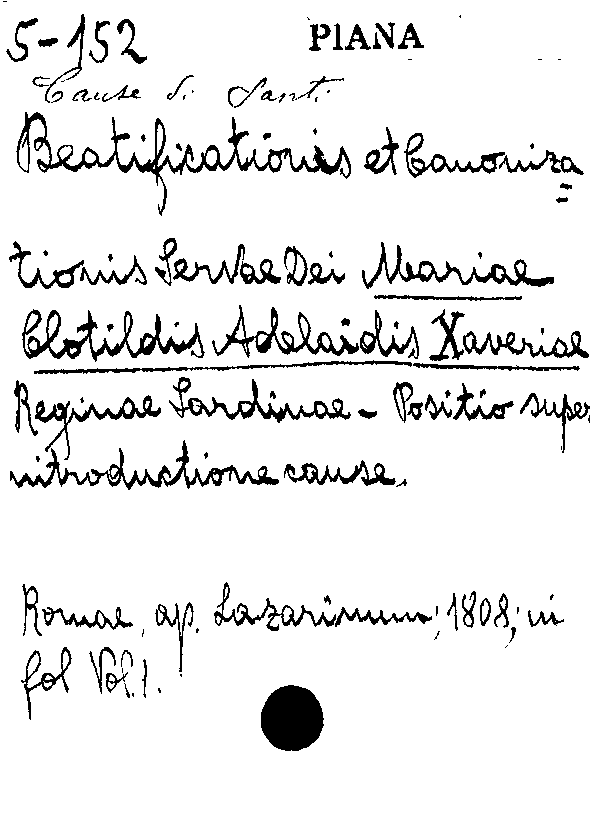 5-152 PIANA
Cause di Santi
Beatificationis et Canoniza
=
tionis Servae Dei Mariae
Clotildis Adelaidis Xaveriae
Reginae Sardinae - Positio super
introductione cause.
Romae, ap. Lazarinum, 1808, in
fol Vol. 1.